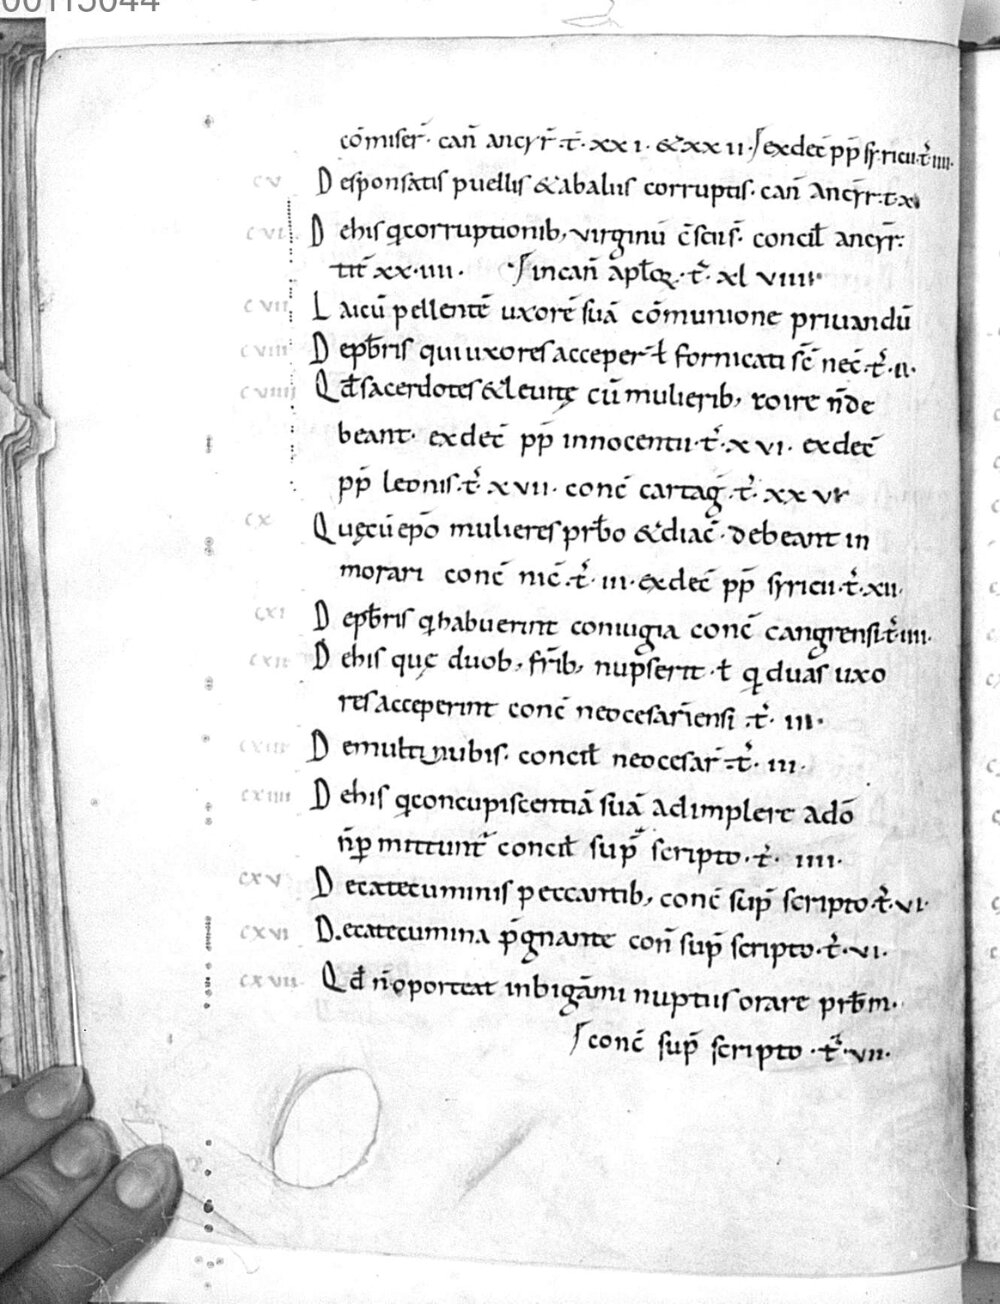 cōmiser̄· can̄ ancyr̄·t̄·xxi·&xxii· ex dec̄ pp̄ syricii·t̄·iiii·
cv Desponsatis puellis & ab aliis corruptis· can̄ ancyr̄·t·x
cvi De his q corruptionib; virginū c̄scii s̄· concił ancyr̄·
tit̄ xx·iiii· in can̄ apłoꝝ·t̄·xl viiii·
cvii Laicū pellentē uxorē suā cōmunione priuandū
cviii De pb̄ris qui uxores acceper̄ ł fornicati s̄ nec̄·t̄·ii·
cviiii Qd̄ sacerdotes & leuitę cū mulierib; coire n̄ de
beant· ex dec̄ pp̄ innocentii·t̄·xvi· ex dec̄
pp̄ leonis·t̄·xvii· conc̄ cartaḡ·t̄·xxv
cx Quę cū ep̄o mulieres prb̄o & diac̄· debeant in
morari conc̄ nic̄·t̄·iii· ex dec̄ pp̄ syricii·t̄·xii·
cxi De pb̄ris q habuerint coniugia conc̄ cangrensi t̄·iiii·
cxii De his quę duob; fr̄ib; nupserit· ł q duas uxo
res acceperint conc̄ neocesariensi·t̄·iii·
cxiii De multi nubis· concił neocesar̄·t̄·iii·
cxiiii De his q concupiscentiā suā adimplere a dō
n̄ p̱mittunt̄ concił sup̄ scripto·t̄·iiii·
cxv De catecuminis peccantib; conc̄ sup̄ scripto·t̄·vi·
cxvi De catecumina p̄gnante con̄ sup̄ scripto·t̄·vi·
cxvii Qd̄ n̄ oporteat in bigami nuptiis orare prb̄m·
conc̄ sup̄ scripto·t̄·vii·